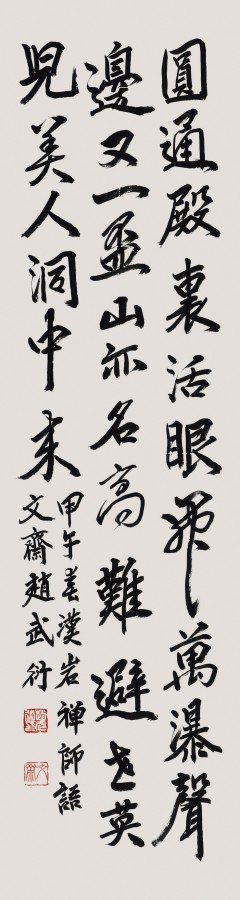 圓通殿裏活眼開萬瀑聲
邊又一盃山亦名高難避世英
兒美人洞中來
甲午春漢岩禪師語
文齋趙武衍